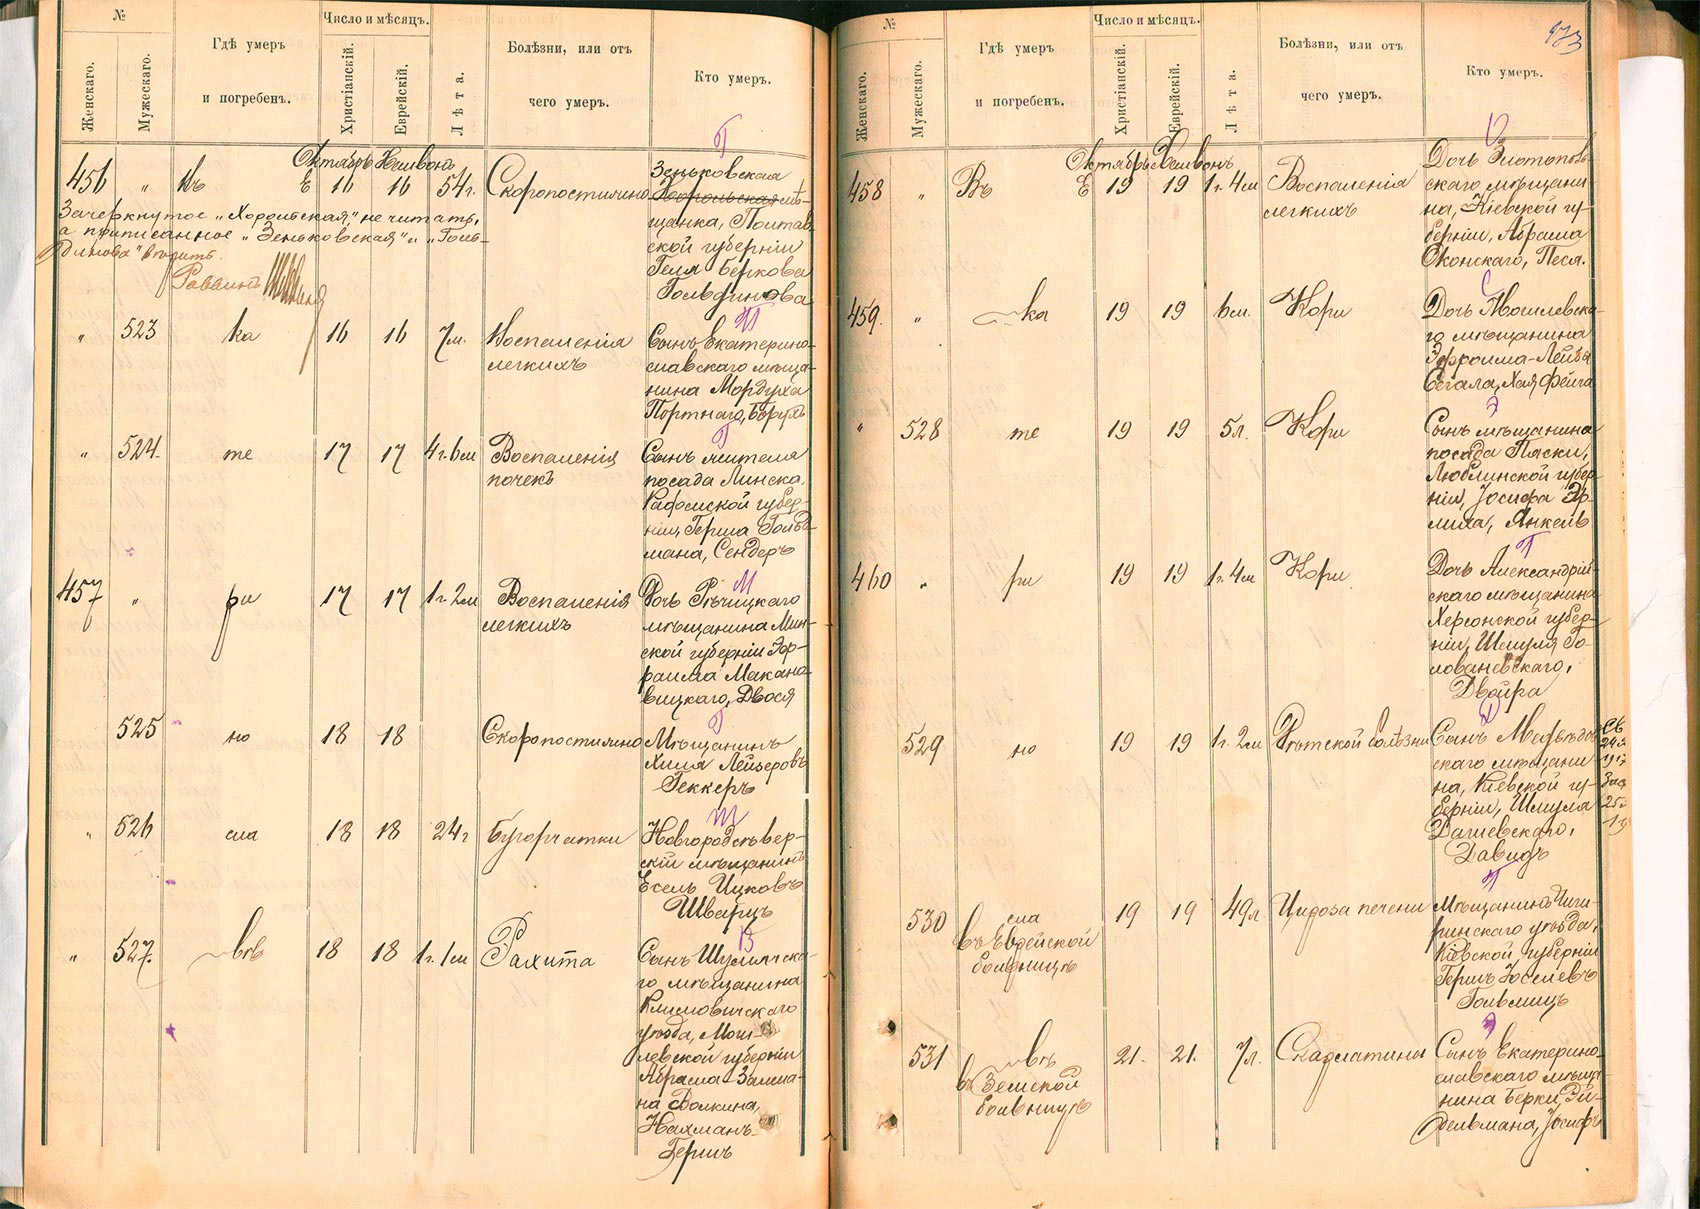 №
Число и мѣсяцъ.
Женскаго.
Мужескаго.
Гдѣ умеръ
и погребенъ.
Христіанскій.
Еврейскій.
Лѣта.
Болѣзни, или отъ
чего умеръ.
Кто умеръ.
Г
Октябръ Хешвонъ
456 „ Въ Е 16 16 54 г. Скоропостижно
Зеньковская
Хорольская мѣ-
щанка, Полтав-
ской губерніи
Геля Беркова
Гольдинова
Зачеркнутое „Хорольская" не читать,
а приписанное „Зеньковская" и „Голь-
динова" вѣрить.
Раввинъ
П
„ 523 ка 16 16 7 м. Воспаленія
легкихъ
Сынъ Екатерино-
славскаго мѣща-
нина Мордуха
Портнаго, Борухъ
Г
„ 524. те 17 17 4 г. 6 м Воспаленія
почекъ
Сынъ жителя
посада Линска
Радомской губер-
ніи, Герша Гольд-
мана, Сендеръ
М
457 „ ри 17 17 1 г. 2 м Воспаленія
легкихъ
Дочь Рѣчицкаго
мѣщанина Мин-
ской губерніи Эф-
раима Макано-
вицкаго, Двося
Г
525 но 18 18 Скоропостижно
Мѣщанинъ
Хила Лейзеровъ
Геккеръ
Ш
„ 526 сла 18 18 24 г Бугорчатки
Новгородсѣвер-
скій мѣщанинъ
Есель Ицковъ
Шварцъ
В
„ 527. вѣ 18 18 1 г. 1 м Рахита
Сынъ
го мѣщанина
Климовичскаго
уѣзда, Моги-
левской губерніи
Абрама Залма-
на Волкина,
Нахманъ-
Гершъ
173
№
Число и мѣсяцъ.
Женскаго.
Мужескаго.
Гдѣ умеръ
и погребенъ.
Христіанскій.
Еврейскій.
Лѣта.
Болѣзни, или отъ
чего умеръ.
Кто умеръ.
О
Октябръ Хешвонъ
458 „ Въ Е 19 19 1 г. 4 м Воспаленія
легкихъ
Дочь Златополь-
скаго мѣщани
на, Кіевской гу-
берніи, Абрама
Оконскаго, Песя.
С
459. „ ка 19 19 6 м. Кори
Дочь Могилевска-
го мѣщанина
Эфроима-Лейба
Сегала, Хая Фейга
Э
„ 528 те 19 19 5 л. Кори
Сынъ мѣщанина
посада Пяски,
Люблинской губер-
ніи, Іосифа Эр-
лиха, Янкель
Г
460 „ ри 19 19 1 г. 4 м Кори
Дочь Александрій-
скаго мѣщанина
Херсонской губер-
ніи, Шмуля Го-
лованевскаго,
Двойра
Д
529 но 19 19 1 г. 2 м Дѣтской болѣзни
Сынъ
скаго мѣщани
на, Кіевской гу-
берніи, Шмуля
Дашевскаго,
Давидъ
Св
Г
530 сла 19 19 49 л. Цироза печени
въ Еврейской
больницѣ
Мѣщанинъ Чиги-
ринскаго уѣзда,
Кіевской губерніи
Гершъ Іоселевъ
Гольмицъ
Э
531 вѣ 21. 21. 7 л. Скарлатины
въ Земской
больницѣ
Сынъ Екатерино-
славскаго мѣща-
нина Берки Эй-
дельмана, Іосифъ